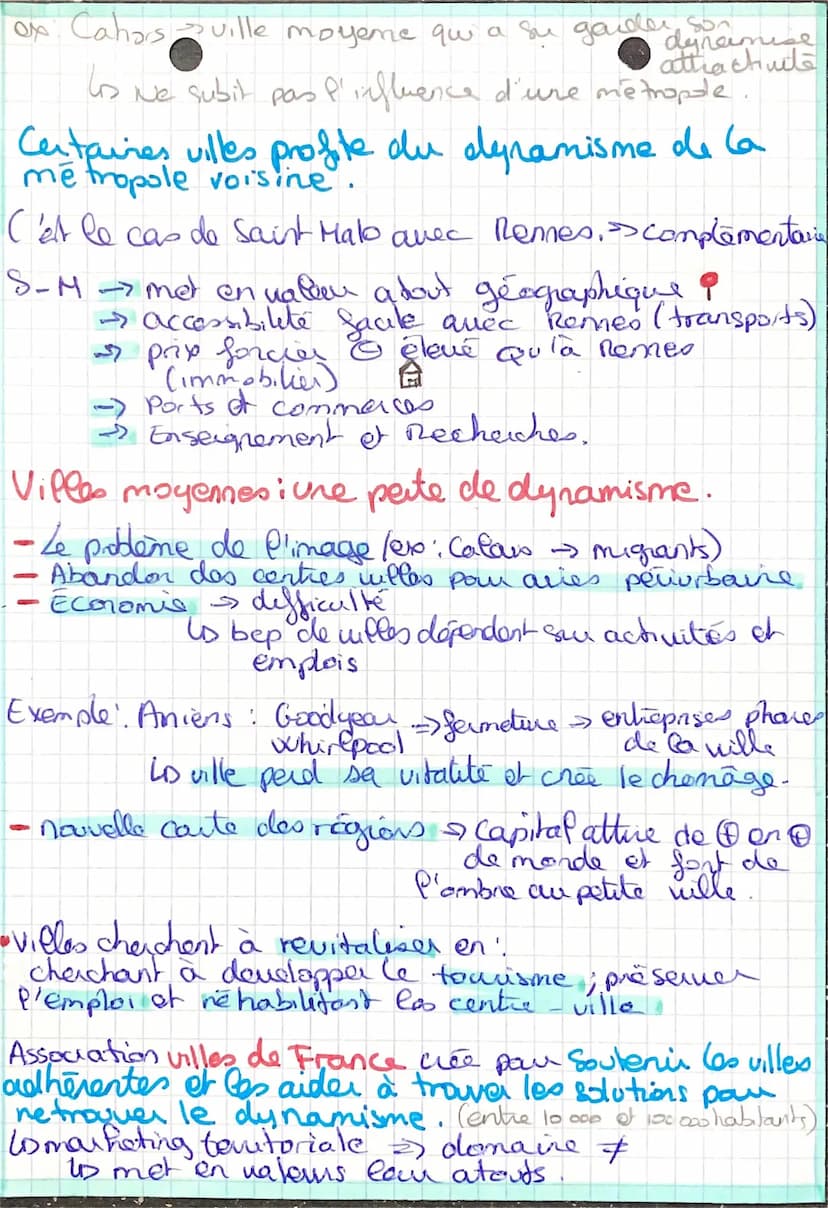 ex: Cahors → ville moyenne qui a su garder son
dynamisme
attractivité
↳ Ne subit pas l'influence d'une métropole.
Certaines villes profite du dynamisme de la
métropole voisine.
C'est le cas de Saint Malo avec Rennes. => complémentaire
S-M → met en valeur atout géographique
→ accessibilité facile avec Rennes (transports)
→ prix foncier ⊖ élevé qu'à Rennes
(immobilier)
→ Ports et commerces
→ Enseignement et Recherches.
Villes moyennes : une perte de dynamisme.
- Le problème de l'image (ex: Calais → migrants)
- Abandon des centres villes pour aires périurbaine
- Économie → difficulté
↳ bcp de villes dépendent sur activités et
emplois
Exemple : Amiens : Goodyear => fermeture => entreprises phares
Whirlpool de la ville
↳ ville perd sa vitalité et crée le chomâge.
- nouvelle carte des régions → Capital attire de ⊕ en ⊕
de monde et font de
l'ombre au petite ville.
• Villes cherchent à revitaliser en :
cherchant à developper le tourisme ; préserver
l'emploi et réhabilitant les centre - ville
Association villes de France crée pour Soutenir les villes
adhérentes et les aider à trouver les solutions pour
retrouver le dynamisme. (entre 10 000 et 100 000 habitants)
↳ marketing territoriale => domaine ≠
↳ met en valeurs leur atouts.